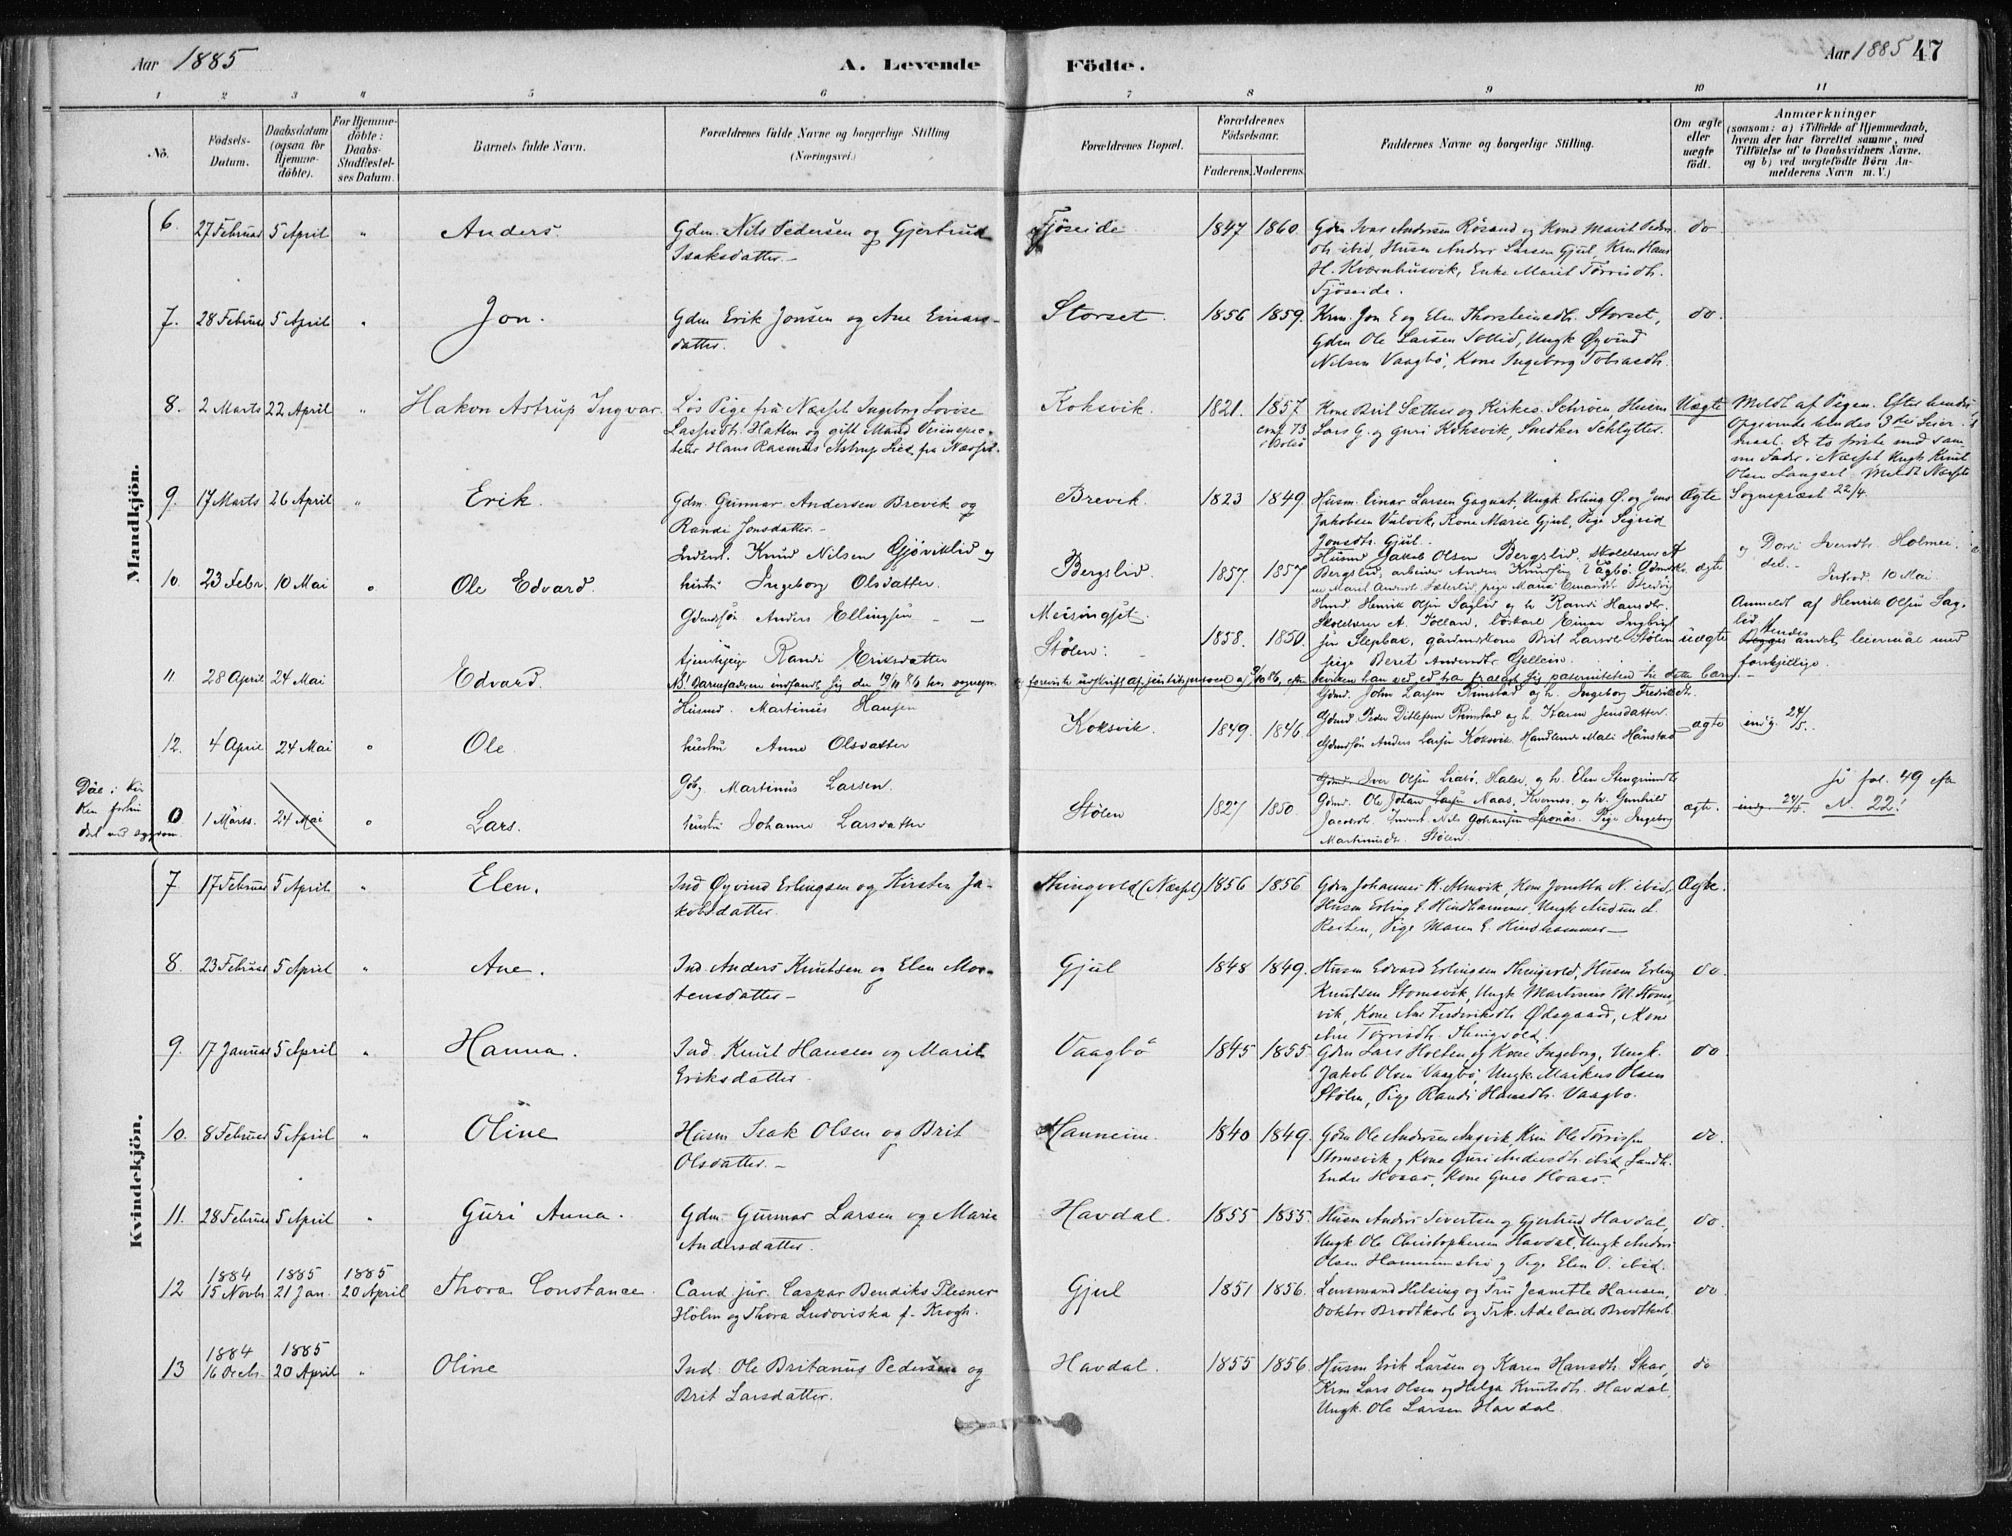 Aar 1885
A. Levende
Födte.
Aar 1885 47
1 2 3 4 5 6 7 8 9 10 11
No.
Födsels-
Datum.
Daabsdatum
(ogsaa for
Hjemme-
döbte).
For Hjemme-
döbte:
Daabs-
Stadfæstel-
ses Datum.
Barnets fulde Navn.
Forældrenes fulde Navne og borgerlige Stilling
(Næringsvei.)
Forældrenes Bopæl.
Forældrenes
Födselsaar.
Faderens. Moderens.
Faddernes Navne og borgerlige Stilling.
Om ægte
eller
uægte
født.
Anmærkninger
(saasom: a) i Tilfælde af Hjemmedaab,
hvem der har forrettet samme, med
Tilföielse af to Daabsvidners Navne.
og b) ved uægtefödte Börn An-
melderens Navn m. V.)
Mandkjön.
6. 27 Februar 5 April " Anders. Gdm. Nils Pedersen og Gjertrud
Isaksdatter.-
Fjöseide 1847 1860. Gdm Ivar Andersen Rösand og Kone Marit Peders
dtr. ibid, Husm Anders Larsen Gjul, Krm Hans
H. Kværnhusvik, Enke Marit Törrisdtr.
Fjöseide. do
7. 28 Februar 5 April " Jon. Gdm Erik Jonsen og Ane Einars-
datter.
Storset. 1856 1859. Krm. Jon E og Elen Thorsteinsdtr. Storset,
Gdm Ole Larsen Sollid, Ungk Øyvind
Nilsen Vaagbö, Kone Ingeborg Tobiasdtr. do.
8. 2 Marts 22 April " Hakon Astrup Ingvar. Lös Pige fra Næsset Ingeborg Lovise
Lassesdtr. Hatten og gift Mand Veiinspec-
teur Hans Rasmus Astrup Lied fra Næsset.
Koksvik. 1821. 1857
conf 73
Kone Brit Sæther og Kirkes. Schröen, Husm
Lars G. og Guri Koksvik, Snedker Schlytter. Uægte
Meldt af Pigen. Efter hendes
Opgivende hendes 3die Leier-
maal. De to förste med sam-
me Fader i Næsset Ungk Knut
Olsen Langset. Meldt Næsset
Sognepræst 22/4.
9. 17 Marts 26 April " Erik. Gdm. Gunnar Andersen Brevik og
Randi Jonsdatter.-
Brevik 1823 1849. Husm. Einar Larsen Gagnat, Ungk Erling Ø. og Jens
Jakobsen Vulvik, Kone Marie Gjul, Pige Sigrid
Jonsdtr. Gjul. Ægte
10. 23 Febr. 10 Mai " Ole Edvard. Inderst. Knud Nilsen Gjöviklid og
hustru Ingeborg Olsdatter.
Bergslid. 1857. 1857 Husmd Jakob Olsen Bergslid. Skolelærer A
Bergslid, arbeider Anders Knudsen Vågbö. ægte
Indtod. 10 Mai.
11 28 April 24 Mai Edvard. Gdmdsön. Anders Ellingsen - -
tjenestpige Randi Eriksdatter
Meisingset.
Stölen. 1858. 1850. Husmd Henrik Olsen Saglid og h. Randi Hansdtr.
Skolelærer A. Tolland, löskarl Einar Ingbrigt
sen Slepbak, gårdmdskone Brit Larsdtr Stölen
pige Beret Andersdtr. Gellein. uægte
Anmeldt af Henrik Olsen Sag-
lid. Hendes
andet leiermål med
forskjellige.
NB! Barnefaderen indfandt sig den 19/11 86 hos sognepr.
12. 4 April 24 Mai " Ole. Husmd. Martinus Hansen
hustru Anne Olsdatter
Koksvik. 1849. 1846. Gdmd. John Larsen Rimstad og h. Ingeborg Fredriksdtr.
Gdmd Peder Ditlefsen Rimstad og h. Karen Jensdatter.
Gdmdsön Anders Larsen Koksvik. Handlende Mali Hånstad ægte indg. 24/5.
Död i
0 1 Marts. 24 Mai " Lars. Gbrg Martinus Larsen.
hustru Johanne Larsdatter
Stölen 1827 1850. Gdmd. Iver Olsen Liabö, Halse, og h. Elen Stengrundt
Gdmd. Ole Johan Larsen Naas, Kvernes og h. Gunhild
Jacobsdtr. Inderst. Nils Johansen Sponås. Pige Ingeborg
Martinusdtr. Stölen. ægte. indg. 24/5 se fol. 49 efter
N. 22!
Kvindekjön.
7 17 Februar 5 April " Elen. Ind Øyvind Erlingsen og Kirsten Ja-
kobsdatter.
Thingvold (Næsset) 1856 1856 Gdm Johannes K. Almvik, Kone Jonetta N. ibid,
Husm Erling E. Hindhammer, Ungk Audun A.
Resten, Pige Maren E. Hindhammer.- Ægte.
8. 23 Februar 5 April " Ane. Ind Anders Knutsen og Elen Mor-
tensdatter.-
Gjul 1848 1849. Husm Edvard Erlingsen Thingvold, Husm Erling
Knutsen Stomsvik, Ungk Martinus M. Stoms-
vik, Kone Ane Frederiksdtr. Ødegaard, Kone
Ane Törrisdtr. Thingvold. do.
9. 17 Januar 5 April " Hanna. Ind. Knut Hansen og Marit
Eriksdatter.
Vaagbö 1845 1855 Gdm Lars Holten og Kone Ingeborg, Ungk.
Jakob Olsen Vaagbö, Ungk Markus Olsen
Stölen, Pige Randi Hansdtr. Vaagbö. do
10. 8 Februar 5 April " Oline Husm Isak Olsen og Brit
Olsdatter.-
Hanneim. 1840 1849. Gdm Ole Andersen Angvik, Krm Ole Törrissen
Stomsvik og Kone Guri Andersdtr. ibid, Landh.
Endre Hoaas, Kone Guro Hoaas. do.
11. 28 Februar 5 April " Guri Anna. Gdm Gunnar Larsen og Marie
Andersdatter.
Havdal. 1855 1855. Husm Anders Sivertsen og Gjertrud Havdal,
Ungk Ole Christophersen Havdal, Ungk Anders
Olsen Hammersbö og Pige Elen O. ibid. do.
12 1884
15 Novbr 1885
21 Jan. 1885
20 April Thora Constance. Cand. jur. Caspar Bendiks Plesner
Holm og Thora Ludoviska f. Krogh.
Gjul 1851 1856. Lensmand Helsing og Fru Jeanette Hansen,
Doktor Brodtkorb og Frk. Adelaide Brodtkorb. do
13 1884
16 Decbr. 1885
20 April " Oline Ind. Ole Britanus Pedersen og
Brit Larsdatter.
Havdal. 1855 1856. Husm Erik Larsen og Karen Hansdtr. Skar,
Krm Lars Olsen og Helga Knutsdtr. Havdal,
Ungk. Ole Larsen Havdal. do